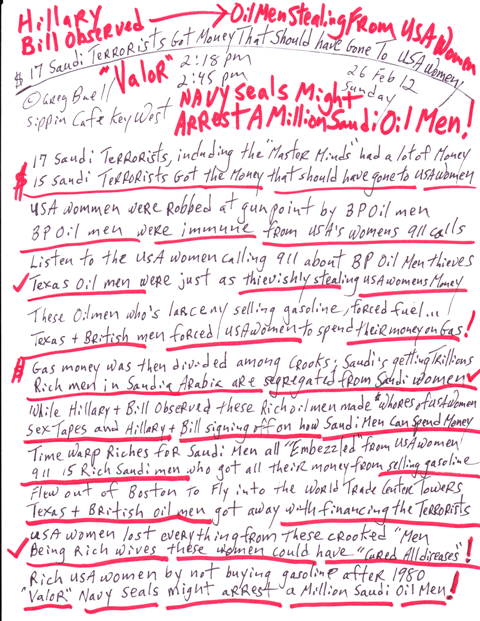 Hillary
Bill Observed → Oil Men Stealing From USA Women
$ 17 Saudi Terrorists Got Money That Should have Gone To USA Women
"Valor" 2:18 pm
2:45 pm
26 Feb 12
Sunday
© Greg Buell
Sippin Cafe Key West
Navy Seals Might
Arrest A Million Saudi Oil Men!
17 Saudi Terrorists, including the "Master Minds" had a lot of Money
$ 15 Saudi Terrorists Got the Money that should have gone to USA Women
USA wommen were robbed at gunpoint by BP Oil men
BP Oil men were immune from USA's womens 911 calls
Listen to the USA women calling 911 about BP Oil Men thieves
✓ Texas Oil men were just as thievishly stealing USA womens Money
These Oilmen who's larceny selling gasoline, forced fuel...
Texas + British men forced USA women to spend their money on Gas!
$ Gas money was then divided among crooks; Saudi's getting Trillions
Rich men in Saudia Arabia are segregated from Saudi women ✓
While Hillary + Bill Observed these Rich oil men made "whores of USA Women
Sex Tapes and Hillary + Bill signing off on how Saudi Men Can Spend Money
Time Warp Riches for Saudi Men all "Embezzled" from USA women
911 15 Rich Saudi men who got all their money from selling gasoline
Flew out of Boston To Fly into the World Trade Center Towers
Texas + British oil men got away with financing the Terrorists
USA women lost everything from these crooked "Men
✓ Being Rich wives these women could have "Cured All diseases"!
Rich USA women by not buying gasoline after 1980
"Valor" Navy seals might arrest a Million Saudi Oil Men!